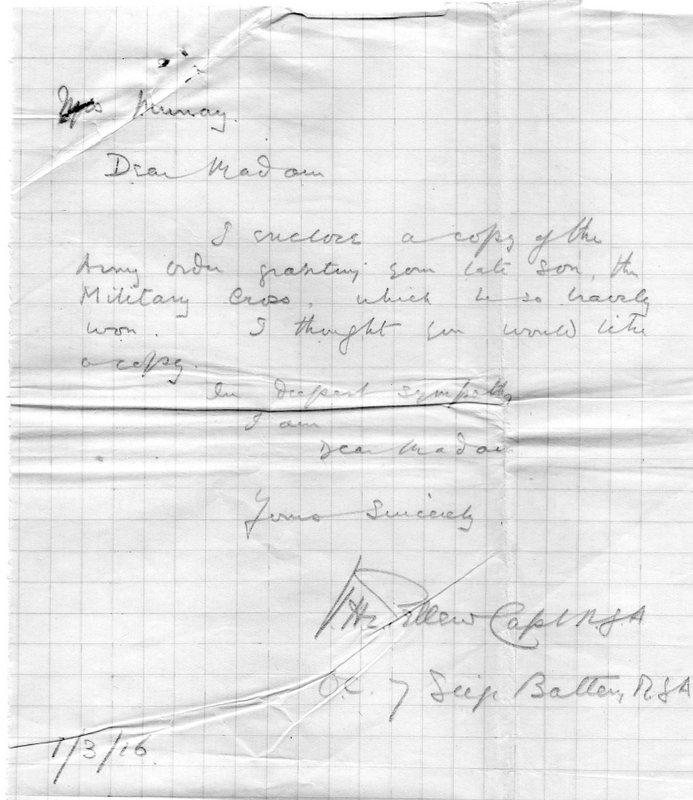 Mrs Murray.
Dear Madam
I enclose a copy of the
Army order granting your late son, the
Military Cross, which he so bravely
won. I thought you would like
a copy.
In deepest sympathy
I am
Dear Madam
Yours Sincerely
Capt RGA
O.C. 7 Seige Battery RGA
1/3/16.